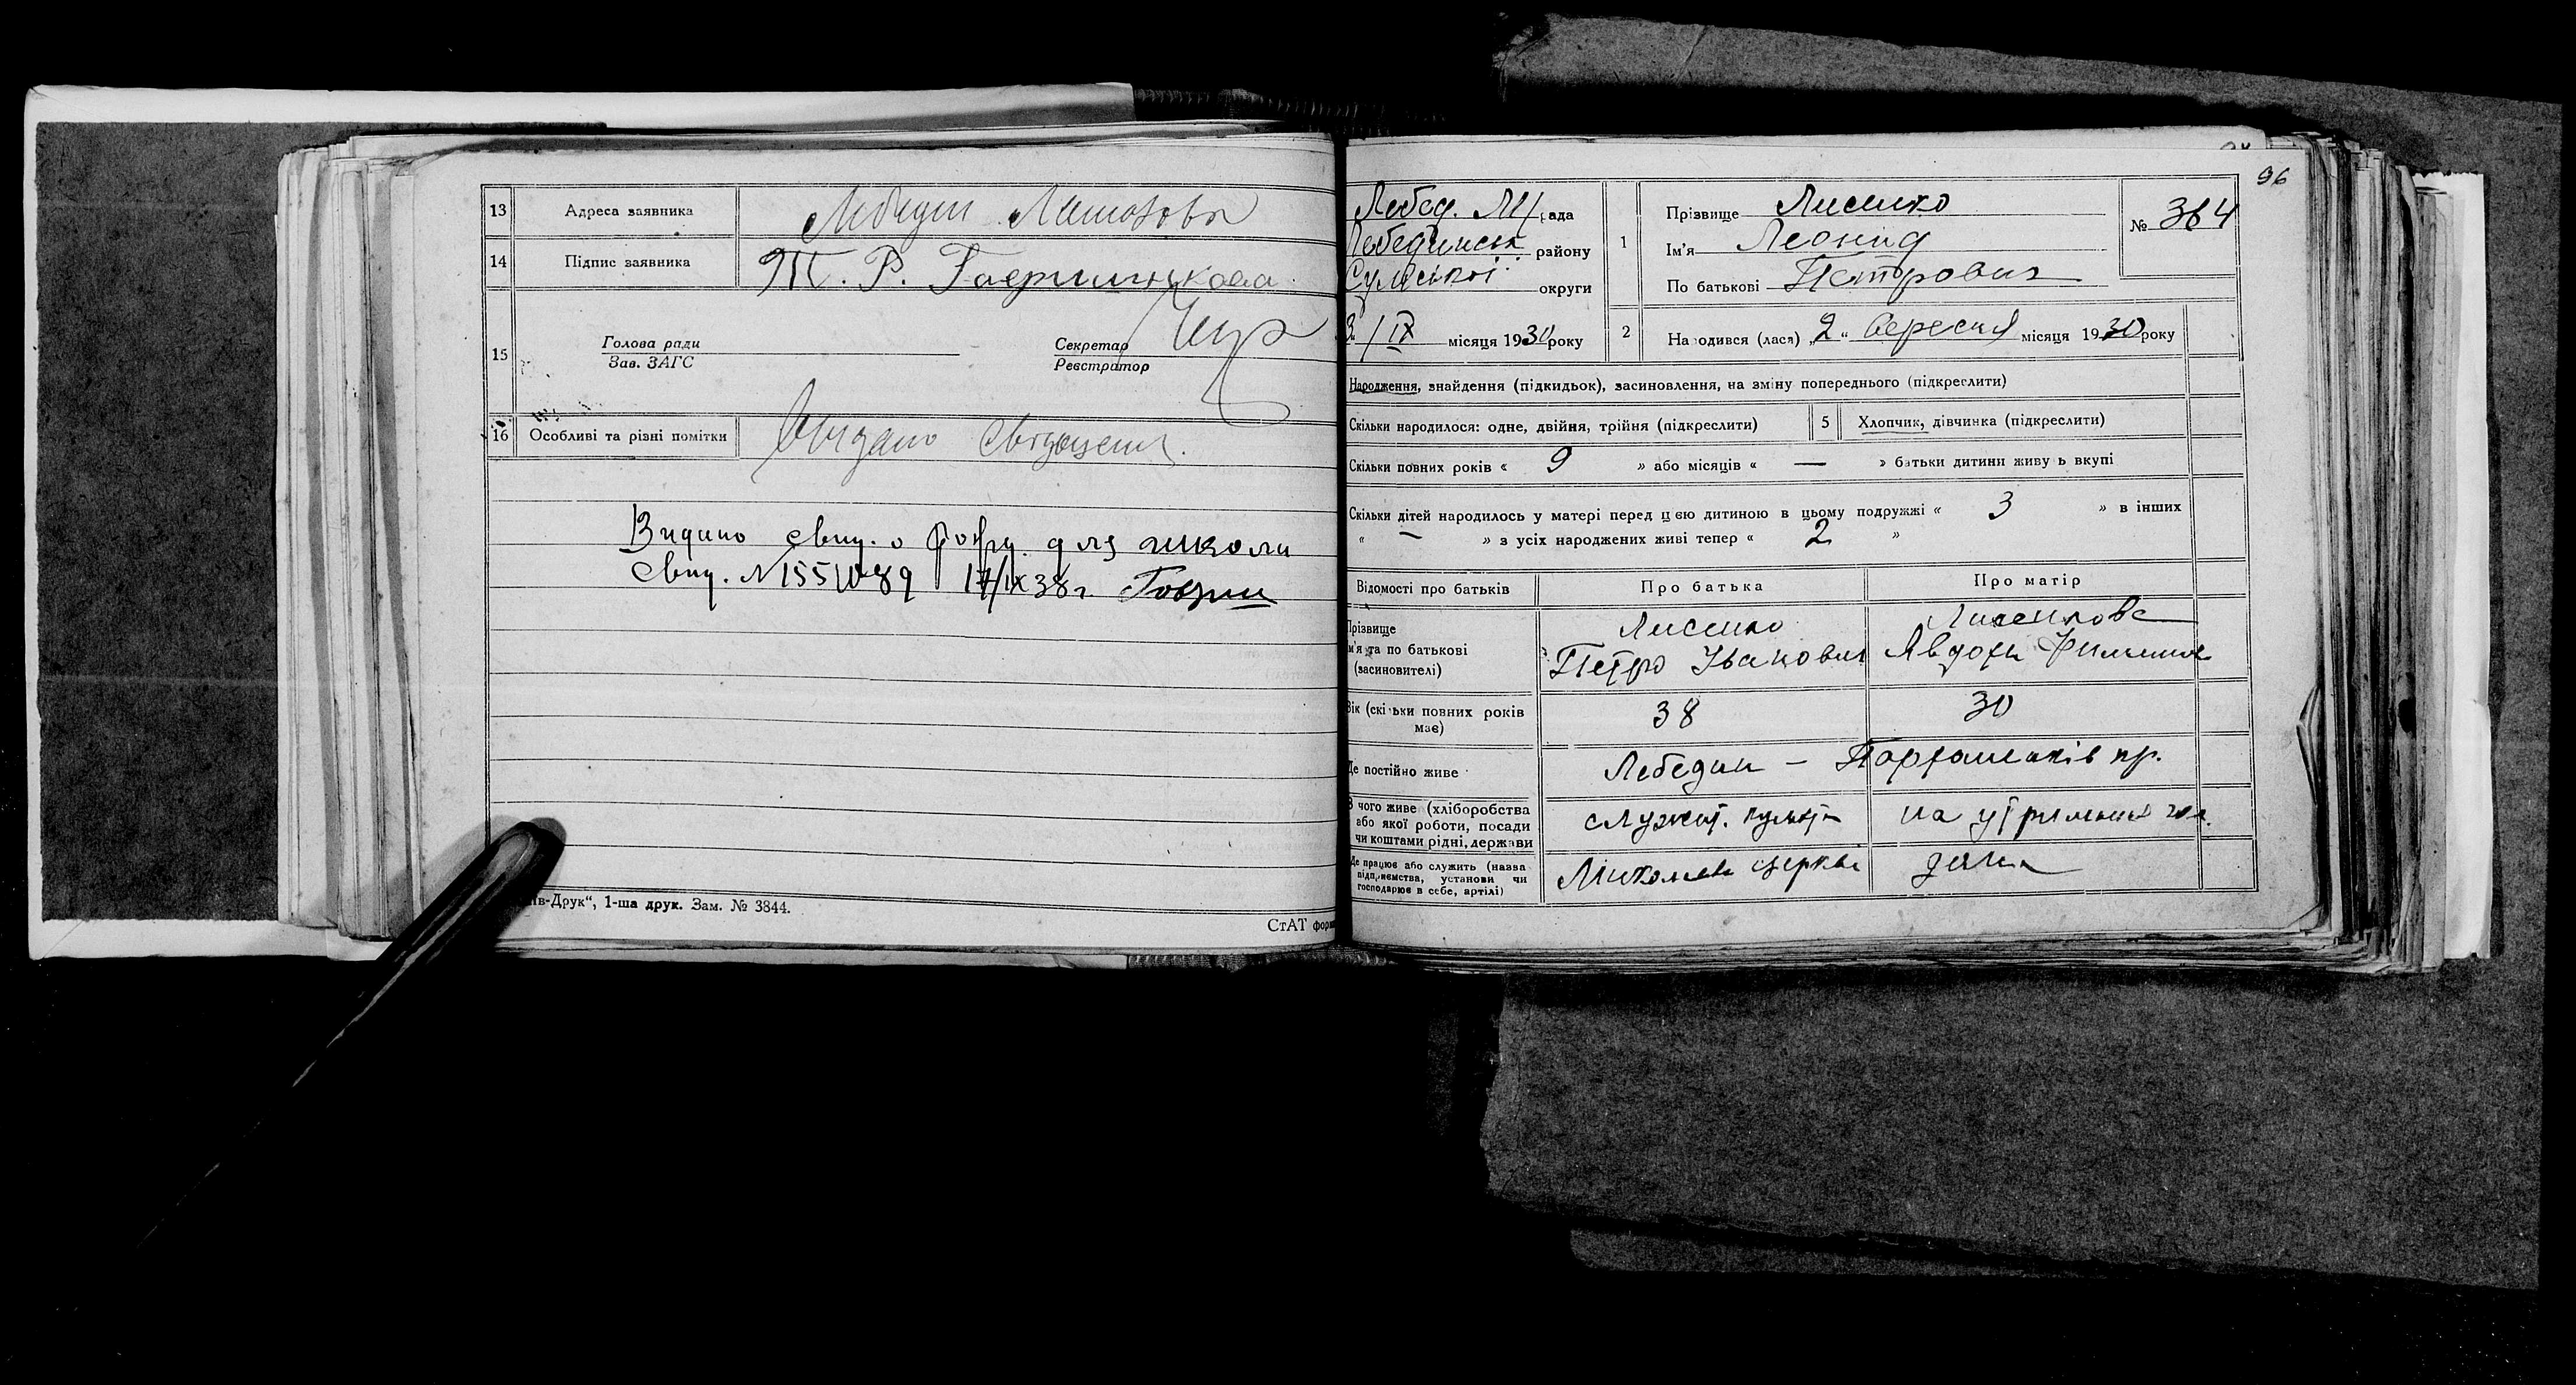 13 Адреса заявника Лебедин
14 Підпис заявника Т. Р. Гавриленкова
15 Голова ради
Зав. ЗАГС
Секретар
Реєстратор
16 Особливі та різні помітки Видано свідоцтво.
Видано свид. о рожд. для школи
Свид. № 17/IX 38 г.
1-ша друк. Зам. № 3844.
СтАТ форм
96
Лебед. М рада
Лебединськ району
Сумської округи
3/IX місяця 1930 року
1 Прізвище Лисенко
Ім'я Леонид
По батькові Петрович
№ 364
2 На одився (лася) „2“ вересня місяця 1930 року
Народження, знайдення (підкидьок), засиновлення, на зміну попереднього (підкреслити)
Скільки народилося: одне, двійня, трійня (підкреслити) 5 Хлопчик, дівчинка (підкреслити)
Скільки повних років « 9 » або місяців « — » батьки дитини живу ь вкупі
Скільки дітей народилось у матері перед цею дитиною в цьому подружжі « 3 » в інших
« — » з усіх народжених живі тепер « 2 »
Відомості про батьків Про батька Про матір
Прізвище
м'я та по батькові
(засиновителі)
Лисенко
Петро Іванович
Лисенкова
Явдоха
Вік (скі ьки повних років
має)
38 30
Де постійно живе Лебедин —
З чого живе (хліборобства
або якої роботи, посади
чи коштами рідні, держави
служит. культа
на утриманні чол.
Де працює або служить (назва
підприємства, установи чи
господарює в себе, артілі)
церкві
дома